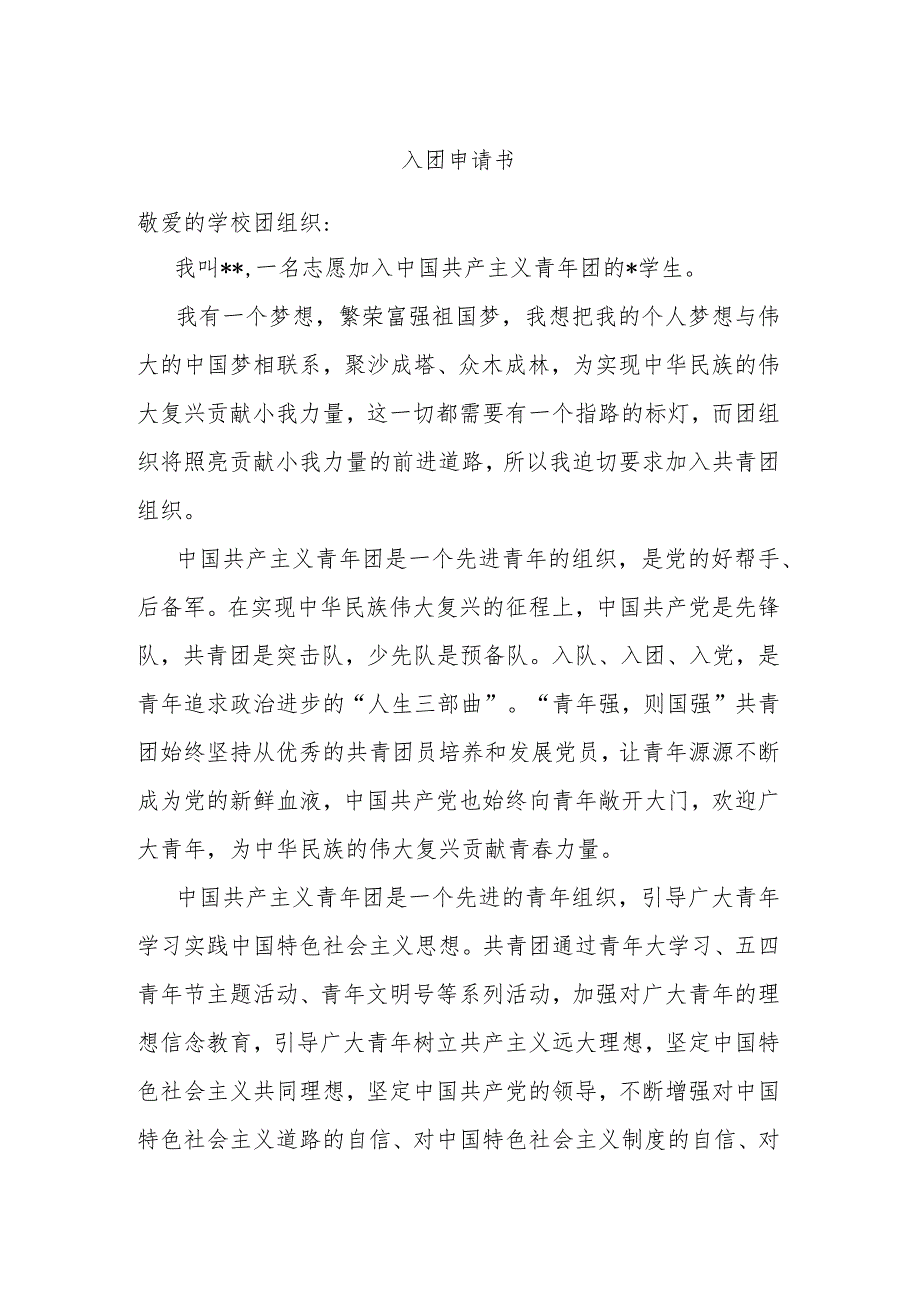 入团申请书
敬爱的学校团组织:
我叫**,一名志愿加入中国共产主义青年团的*学生。
我有一个梦想，繁荣富强祖国梦，我想把我的个人梦想与伟
大的中国梦相联系，聚沙成塔、众木成林，为实现中华民族的伟
大复兴贡献小我力量，这一切都需要有一个指路的标灯，而团组
织将照亮贡献小我力量的前进道路，所以我迫切要求加入共青团
组织。
中国共产主义青年团是一个先进青年的组织，是党的好帮手、
后备军。在实现中华民族伟大复兴的征程上，中国共产党是先锋
队，共青团是突击队，少先队是预备队。入队、入团、入党，是
青年追求政治进步的“人生三部曲”。“青年强，则国强”共青
团始终坚持从优秀的共青团员培养和发展党员，让青年源源不断
成为党的新鲜血液，中国共产党也始终向青年敞开大门，欢迎广
大青年，为中华民族的伟大复兴贡献青春力量。
中国共产主义青年团是一个先进的青年组织，引导广大青年
学习实践中国特色社会主义思想。共青团通过青年大学习、五四
青年节主题活动、青年文明号等系列活动，加强对广大青年的理
想信念教育，引导广大青年树立共产主义远大理想，坚定中国特
色社会主义共同理想，坚定中国共产党的领导，不断增强对中国
特色社会主义道路的自信、对中国特色社会主义制度的自信、对